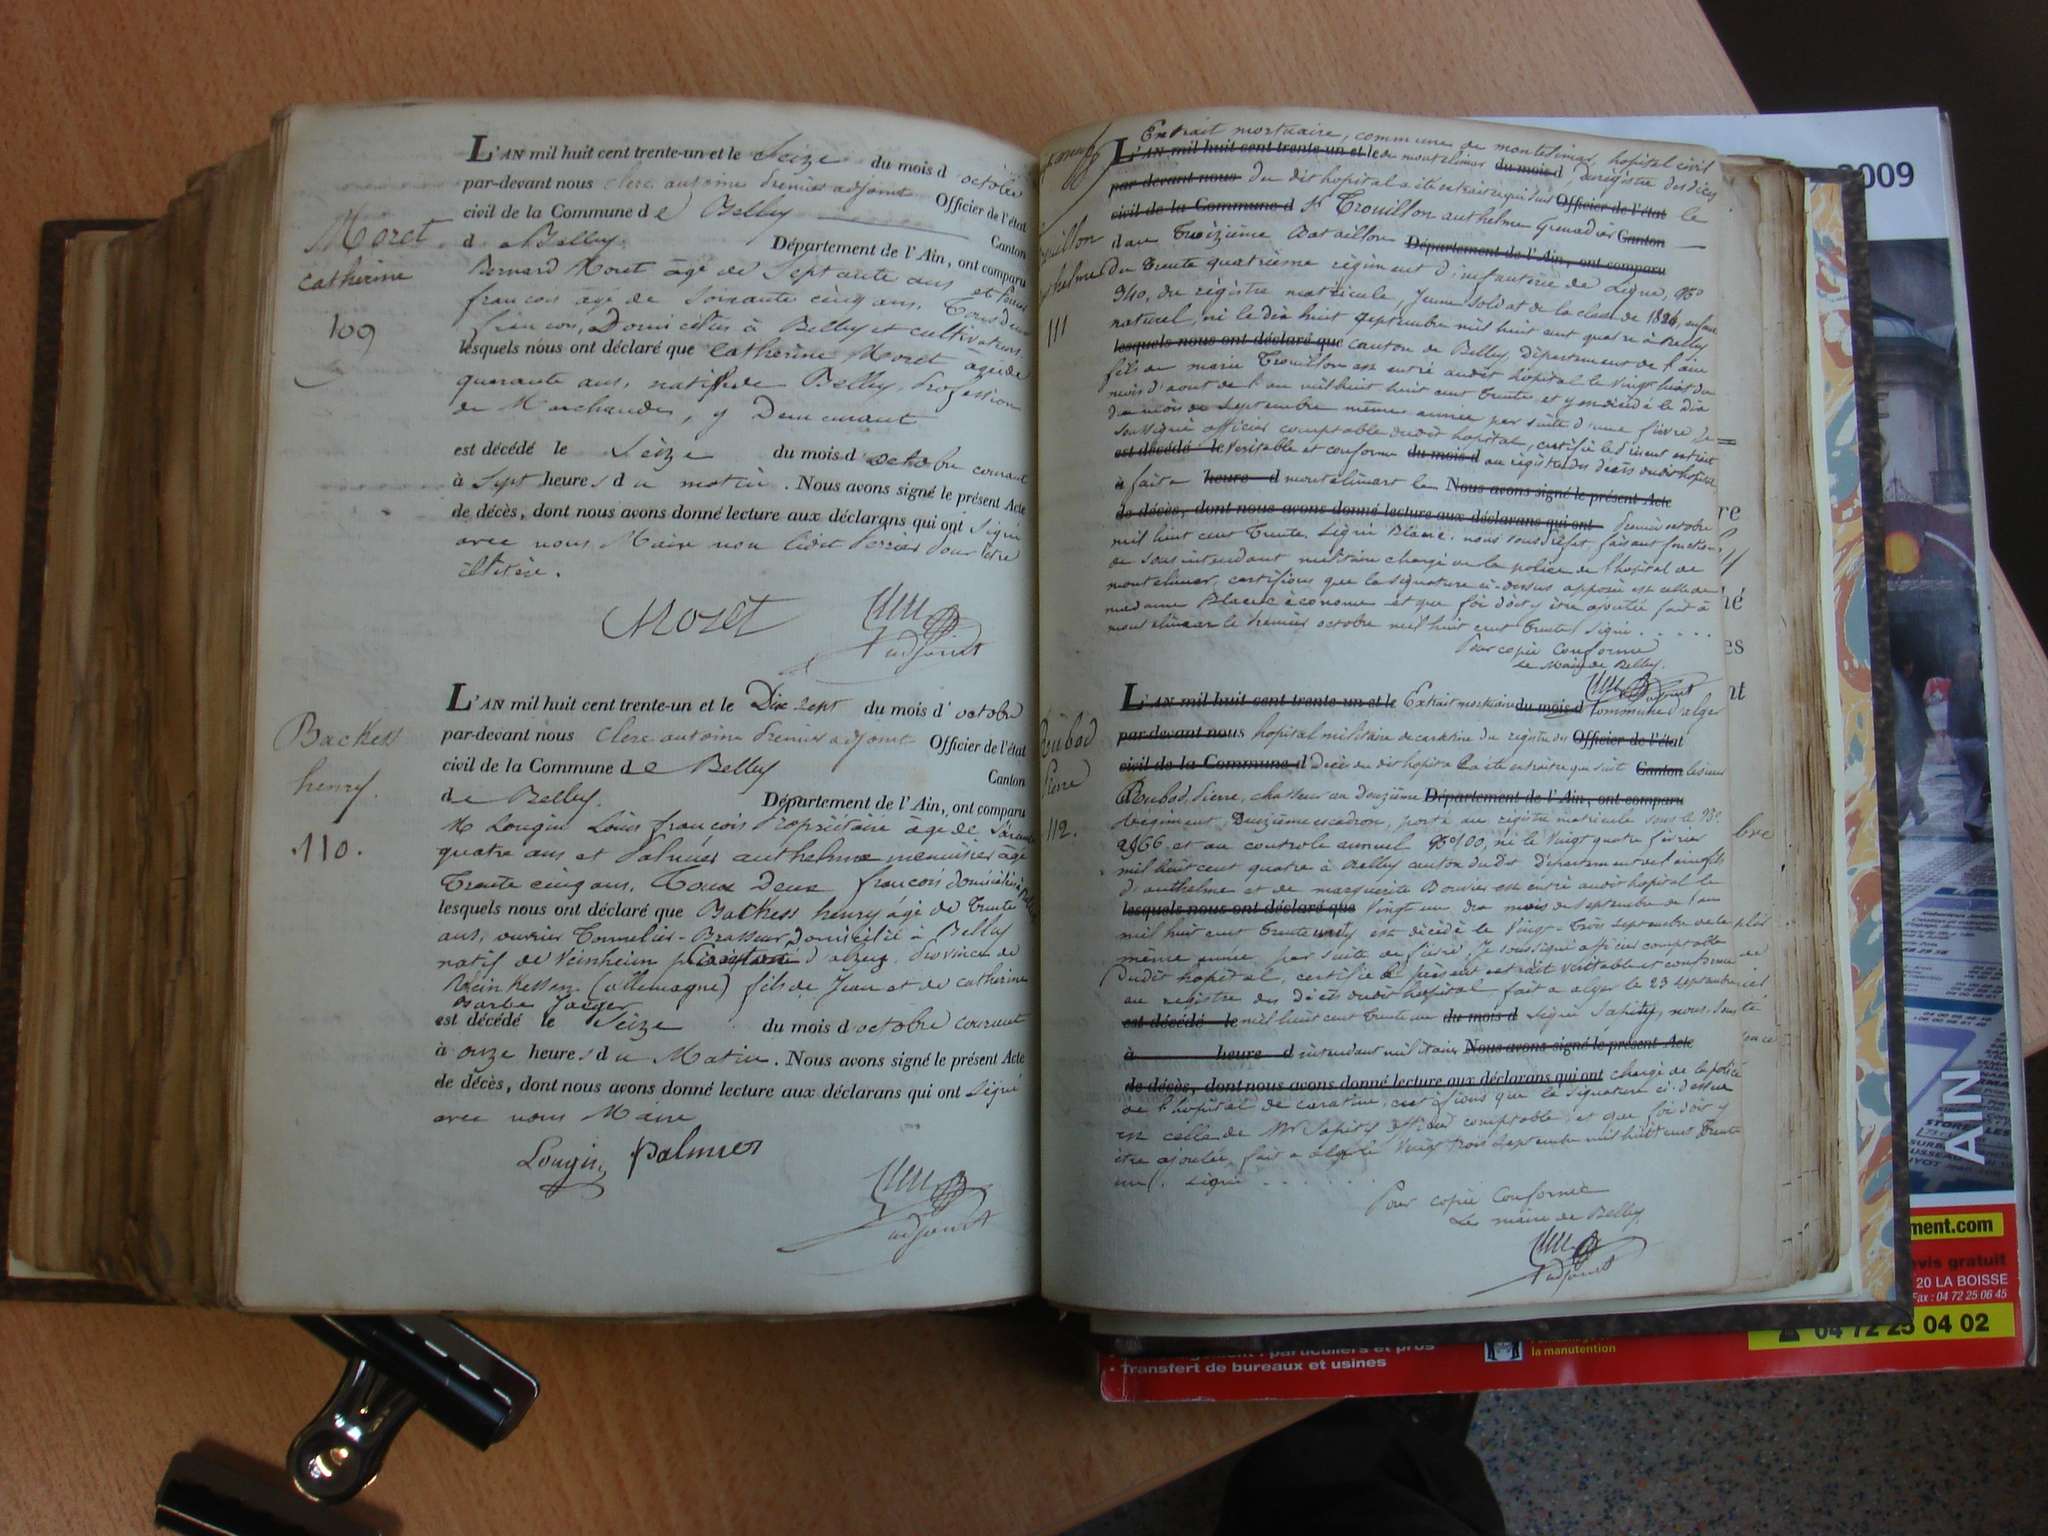 Moret
catherine
109
L'AN mil huit cent trente-un et le Seize du mois d octobre
par-devant nous Clerc antoine premier adjoint Officier de l'état
civil de la Commune de Belley Canton
de Belley. Département de l'Ain, ont comparu
Bernard Moret âgé de Septante ans et
françois âgé de Soixante cinq ans. Tous deux
françois, Domiciliés à Belley et cultivateurs.
lesquels nous ont déclaré que Catherine Moret âgée de
quarante ans, native de Belley, Profession
de Marchande, y Demeurant
est décédé le Seize du mois d octobre courant
à Sept heures du matin. Nous avons signé le présent Acte
de décès, dont nous avons donné lecture aux déclarans qui ont Signé
avec nous Maire non ledit pour être
illitéré.
Moret
adjoint
Backess
henry.
110.
L'AN mil huit cent trente-un et le Dix sept du mois d'octobre
par-devant nous Clerc antoine Premier adjoint Officier de l'état
civil de la Commune de Belley Canton
de Belley. Département de l'Ain, ont comparu
M Lougin Louis françois Propriétaire âgé de
quatre ans et Palmier anthelme menuisier âgé
Trente cinq ans. Tous Deux françois domiciliés à Belley
lesquels nous ont déclaré que Backess henry âgé de Trente
ans, ouvrier Tonnelier-Brasseur domicilié à Belley
natif de Veinheim Canton d'alzey. Province de
Rhein hessen (allemagne) fils de Jean et de catherine
Barbe Jaeger
est décédé le Seize du mois d octobre courant
à onze heures du Matin. Nous avons signé le présent Acte
de décès, dont nous avons donné lecture aux déclarans qui ont Signé
avec nous Maire
Lougin Palmier
adjoint
Extrait mortuaire, commune de montelimar, hopital civil
L'AN mil huit cent trente-un et le de montelimar du mois d du registre des décès
par-devant nous du dit hopital a été extrait ce qui suit Officier de l'état le
civil de la Commune d Sr Trouillon anthelme Grenadier Canton
d au Troizième Bataillon Département de l'Ain, ont comparu
du Trente quatrième régiment d'infanterie de Ligne, No
940, du registre matricule, Jeune soldat de la classe de 1824, enfant
naturel, né le dix huit septembre mil huit cent quatre à Belley
lesquels nous ont déclaré que canton de Belley, Département de l'ain
fils de marie Trouillon est entré audit hopital le vingt huit du
mois d'aout de l'an mil huit cent Trente, et y est décédé le dix
du mois de septembre même année par suite d'une fièvre. Je
soussigné officier comptable dudit hopital, certifie le présent extrait
est décédé le véritable et conforme du mois d au registre des décès dudit hopital
à fait a heure d montelimart le Nous avons signé le présent Acte
de décès, dont nous avons donné lecture aux déclarans qui ont Premier octobre
mil huit cent Trente. Signé Blanc. nous sous préfet, faisant fonctions
de sous intendant militaire chargé de la police de l'hopital de
montelimar, certifions que la signature ci-dessus apposée est celle de
madame Blanc économe et que foi doit y être ajoutée fait à
montelimar le premier octobre mil huit cent Trente Signé . . . . .
Pour copie Conforme
Le Maire de Belley.
adjoint
Trouillon
anthelme
111
Roubod
Pierre
112.
L'AN mil huit cent trente-un et le Extrait mortuaire du mois d Commune d'alger
par-devant nous hopital militaire de caratine du registre des Officier de l'état
civil de la Commune d Décès du dit hopital a été extrait ce qui suit Canton le sieur
Roubod Pierre, chasseur au Douzième Département de l'Ain, ont comparu
Regiment, Deuxième escadron, porté au registre matricule sous le No.
2966 et au controle annuel No 100, né le Vingt quatre février
mil huit cent quatre à Belley canton du Dit Département de l'ain fils
d'anthelme et de marguerite Bouvier est entré audit hopital le
lesquels nous ont déclaré que Vingt un du mois de Septembre de l'an
mil huit cent Trente un, y est décédé le Vingt-Trois septembre de la
même année par suite de fièvre. Je soussigné officier comptable
Dudit hopital, certifie le présent extrait véritable et conforme
au registre des Décès dudit hopital, fait a alger le 23 septembre
est décédé le mil huit cent Trente un du mois d Signé Sahity, nous sous
à heure d intendant militaire Nous avons signé le présent Acte
de décès, dont nous avons donné lecture aux déclarans qui ont chargé de la police
de l'hopital de caratine, certifions que la signature ci-dessus
est celle de Mr Sahity officier comptable, et que foi doit y
être ajoutée, fait a alger le Vingt trois septembre mil huit cent Trente
un, signé . . . . . .
Pour copie Conforme
Le maire de Belley,
adjoint
2009
AIN
ment.com
evis gratuit
20 LA BOISSE
Fax : 04 72 25 06 45
04 72 25 04 02
la manutention
• Transfert de bureaux et usines